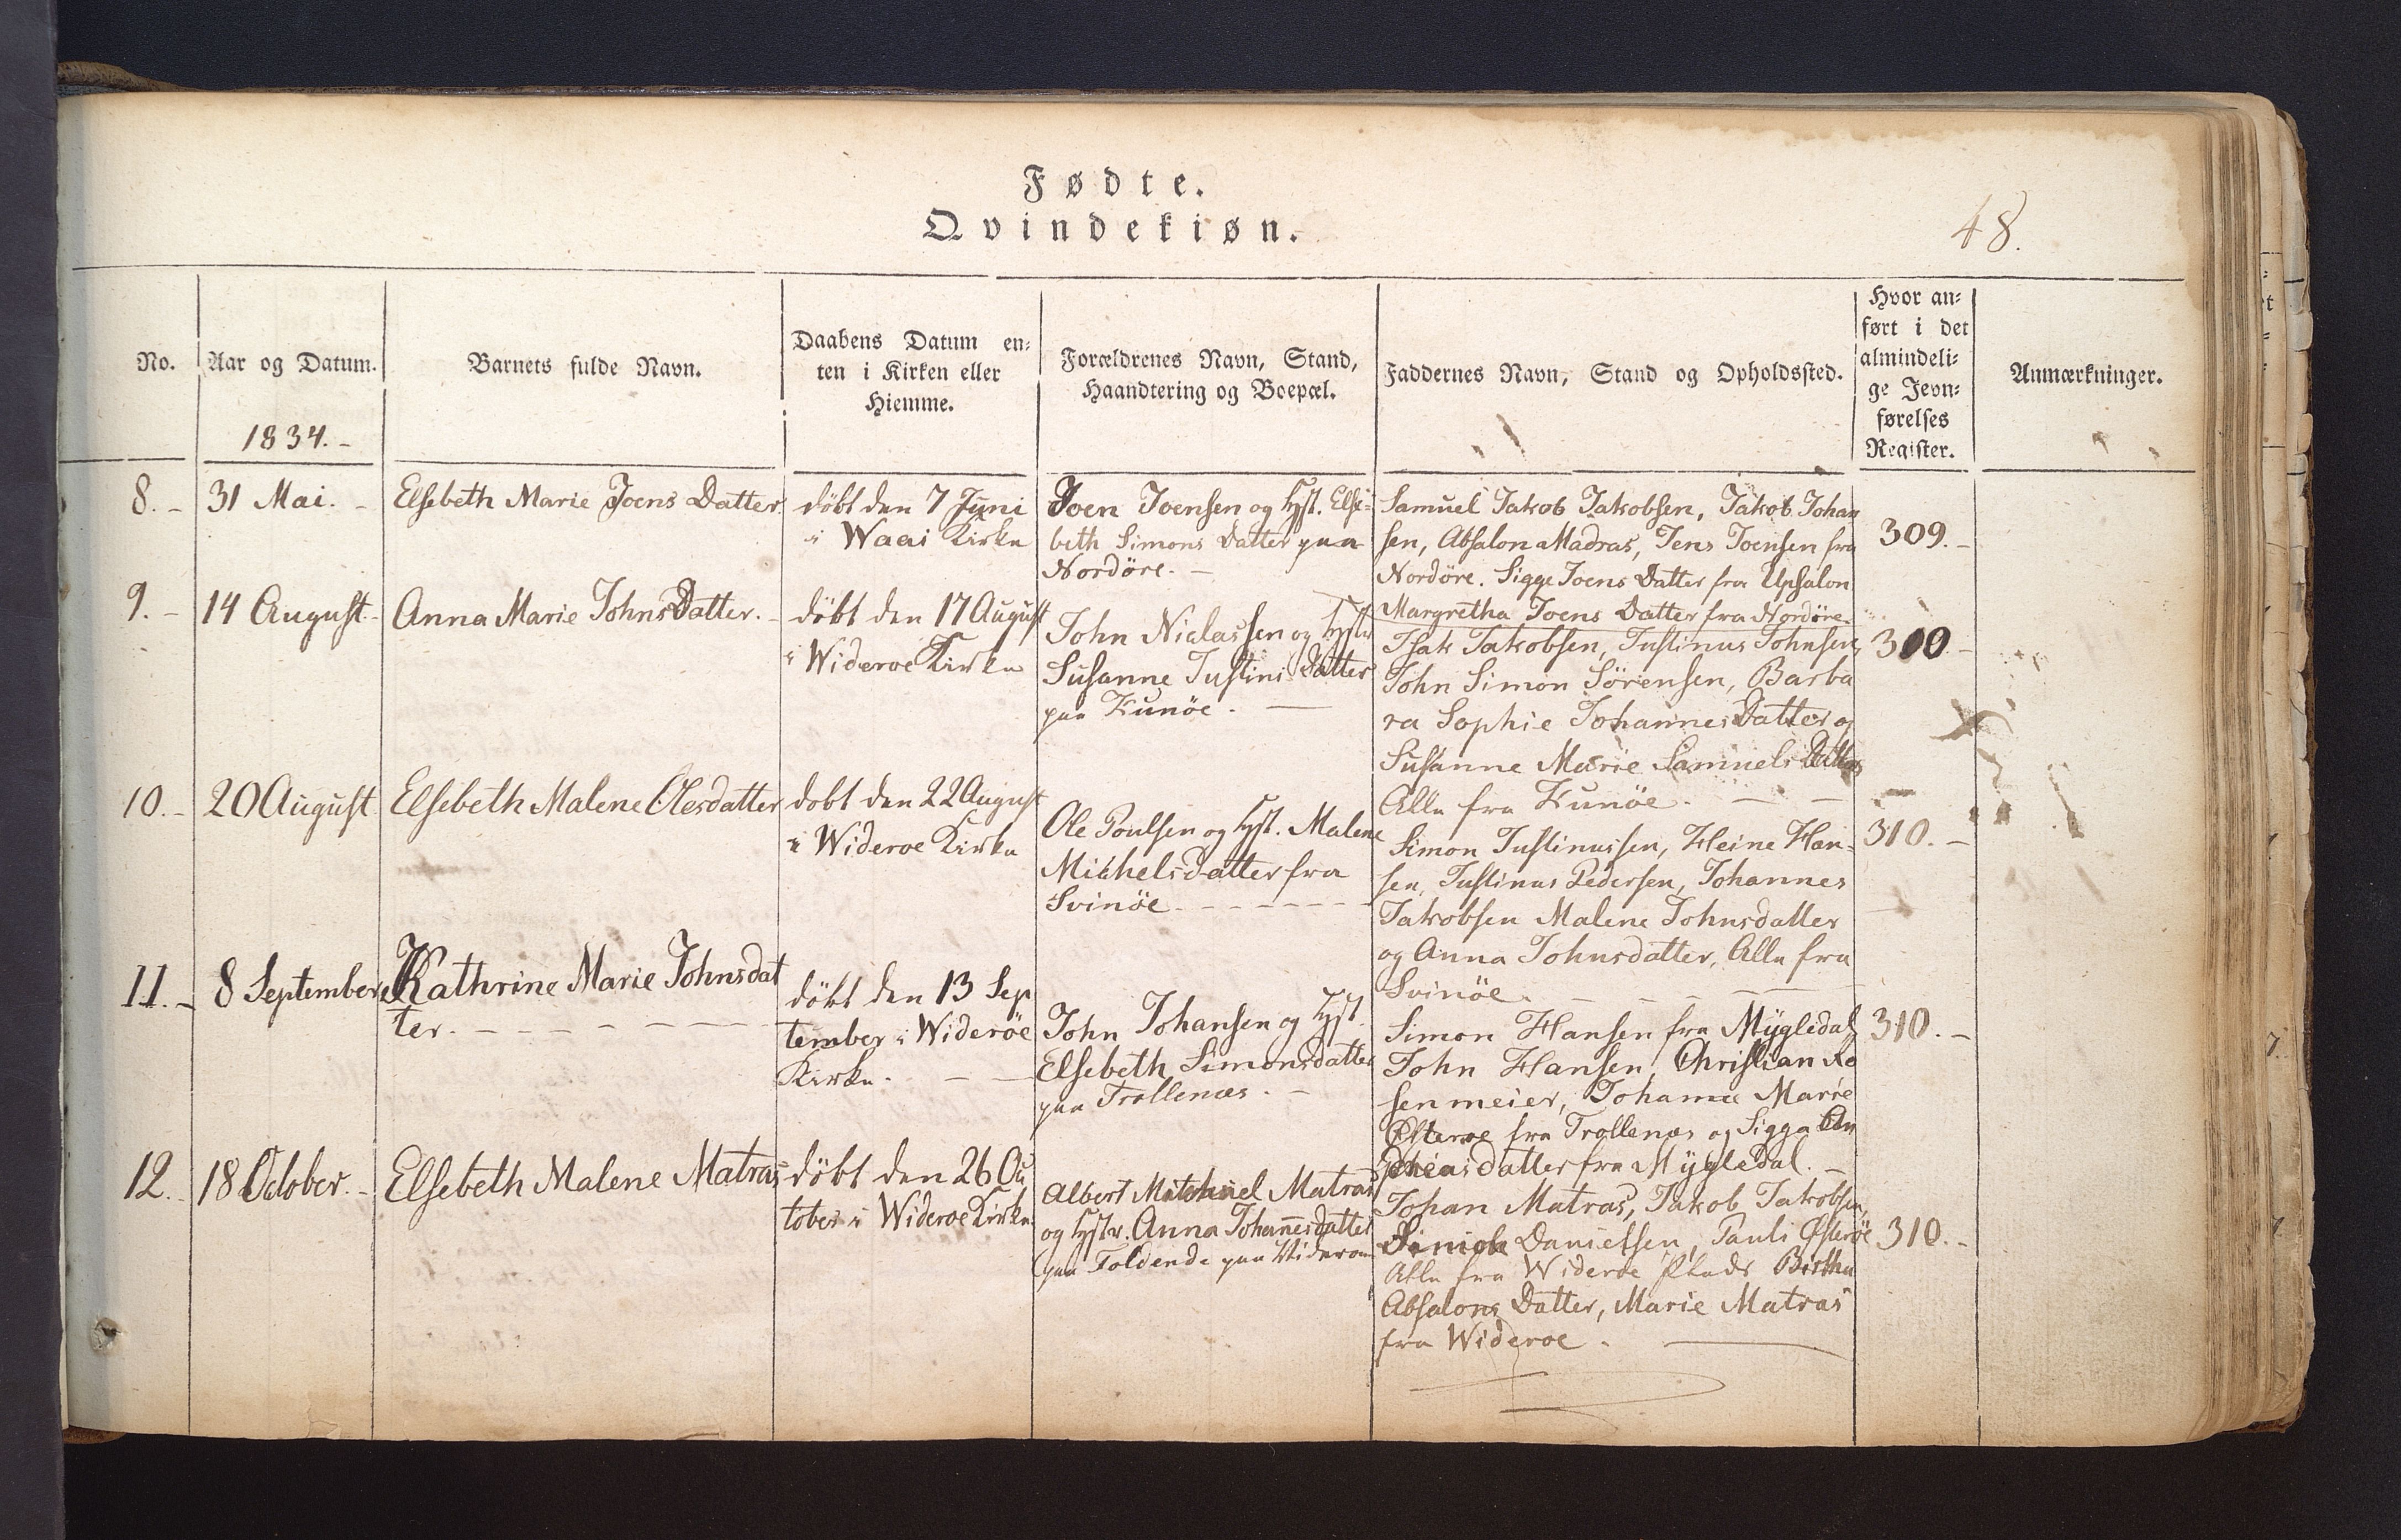 Fødte.
Qvindekiøn.
48.
No.
Aar og Datum.
1834.-
Barnets fulde Navn.
Daabens Datum en-
ten i Kirken eller
Hiemme.
Forældrenes Navn, Stand,
Haandtering og Boepæl.
Faddernes Navn, Stand og Opholdssted.
Hvor an-
ført i det
almindeli-
ge Jevn-
førelses
Register.
Anmærkninger.
8.-
31 Mai. -
Elsebeth Marie Joens Datter
døbt den 7 Juni
i Waai Kirke
Joen Joensen og Hst. Else-
beth Simons Datter paa
Nordøre. -
Samuel Jakob Jakobsen, Jakob Johan
sen, Absalon Madras, Jens Joensen fra
Nordøre. Sigge Joens Datter fra Upsalon
Margretha Joens Datter fra Nordøre.
309.-
9.-
14 August.-
Anna Marie Johns Datter.-
døbt den 17 August
i Wideroe Kirke
John Niclassen og Hstr
Susanne Justini Datter
paa Kunøe. -
Isak Jakobsen, Justinus Johnsen,
John Simon Sørensen, Barba
ra Sophie Johannes Datter og
Susanne Marie Samuels Datter
Alle fra Kunøe. - -
300.-
10.-
20 August
Elsebeth Malene Olesdatter
dobt den 22 August
i Wideroe Kirke
Ole Poulsen og Hst. Malene
Michelsdatter fra
Svinöe - - - - - -
Simon Justinussen, Heine Han-
sen, Justinus Pedersen, Johannes
Jakobsen Malene Johnsdatter
og Anna Johnsdatter, Alle fra
Svinöe. - - - - -
310.-
11.-
8 September
Kathrine Marie Johnsdat
ter. - - - - - -
døbt den 13 Sep
tember i Widerøe
Kirke. - -
John Johansen og Hst.
Elsebeth Simonsdatter
paa Trollenæs. -
Simon Hansen fra Mÿgledal,
John Hansen, Christian Ro
senmeier, Johanna Marie
Østerøe fra Trollenæs og Sigga
datter fra Mÿgledal. -
310.-
12.-
18 October.-
Elsebeth Malene Matras
døbt den 26 Oc
tober i Wideroe Kirke.
Albert Michael Matras
og Hstr. Anna Johannesdatter
paa Toldende paa Wideroe
Johan Matras, Jakob Jakobsen,
Danielsen, Pauli Østerøe
Alle fra Wideroe Birthe
Absalons Datter, Marie Matras
fra Wideroe. -
310.-